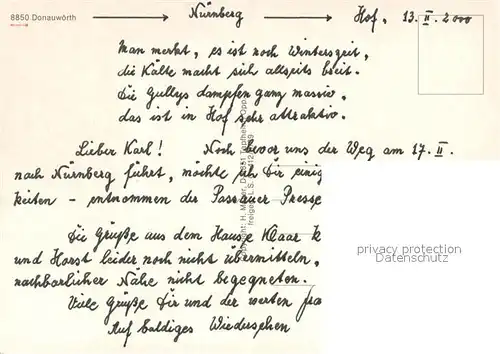 8850 Donauwörth → Nürnberg → Hof, 13. II. 2000
Man merkt, es ist noch Winterszeit,
die Kälte macht sich allseits breit.
Die Gullys dampfen ganz massiv,
das ist in Hof sehr attraktiv.
Lieber Karl! Noch bevor uns der Weg am 17. II.
nach Nürnberg führt, möchte ich Dir einig
keiten - entnommen der Passauer Presse
Die Grüße aus dem Hause
und Horst leider noch nicht übermitteln,
nachbarlicher Nähe nicht begegneten.
Viele Grüße Dir und der werten Fra
Auf baldiges Wiedersehen
privacy protection
Datenschutz